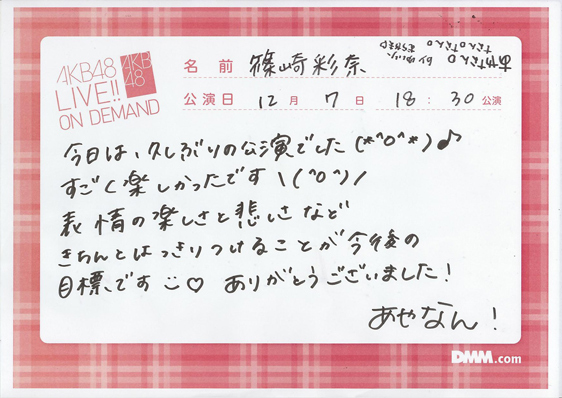 AKB48
LIVE!!
ON DEMAND
AKB
48
名前 篠崎彩奈
公演日 12月7日 18:30公演
今日は、久しぶりの公演でした(*^o^*)♪
すごく楽しかったです\(^o^)/
表情の楽しさと悲しさなど
きちんとはっきりつけることが今後の
目標です ♡ ありがとうございました!
あやなん!
DMM.com